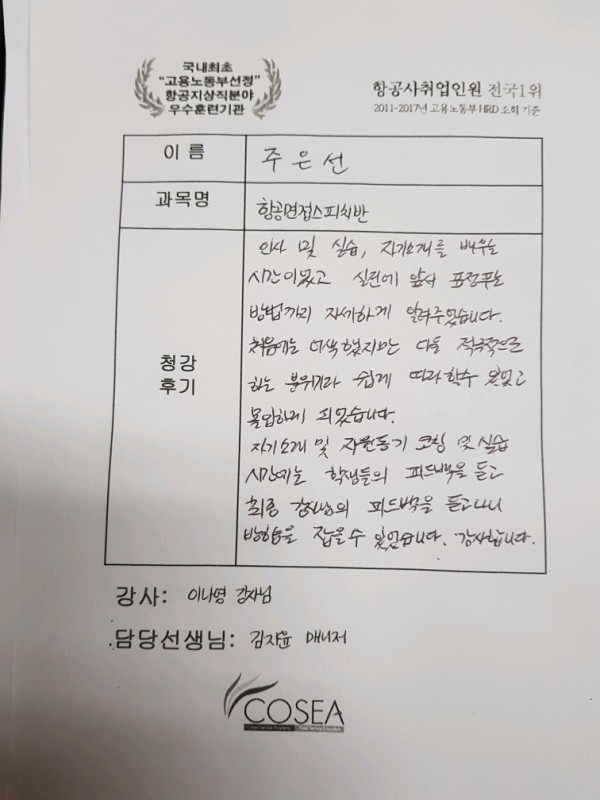 국내최초
"고용노동부선정"
항공지상직분야
우수훈련기관
항공사취업인원 전국1위
2011-2017년 고용노동부 HRD 조회 기준
이 름
주은선
과목명
항공면접스피치반
청강
후기
인사 및 실습, 자기소개를 배우는
시간이었고 실전에 앞서 표정푸는
방법까지 자세하게 알려주었습니다.
처음에는 어색했지만 다들 적극적으로
하는 분위기라 쉽게 따라할수 있었고
몰입하게 되었습니다.
자기소개 및 지원동기 코칭 및 실습
시간에는 학생들의 피드백을 듣고
최종 강사님의 피드백을 듣고나니
방향을 잡을수 있었습니다. 감사합니다.
강사: 이나영 강사님
담당선생님: 김지윤 매니저
COSEA